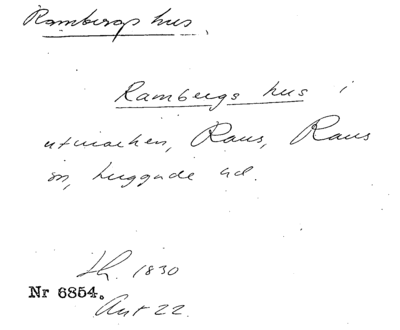 Rambergs hus.
Rambergs hus i
utmarken, Raus, Raus
sn, Luggude hd.
Lh. 1830
Nr 6854.
Ant 22.